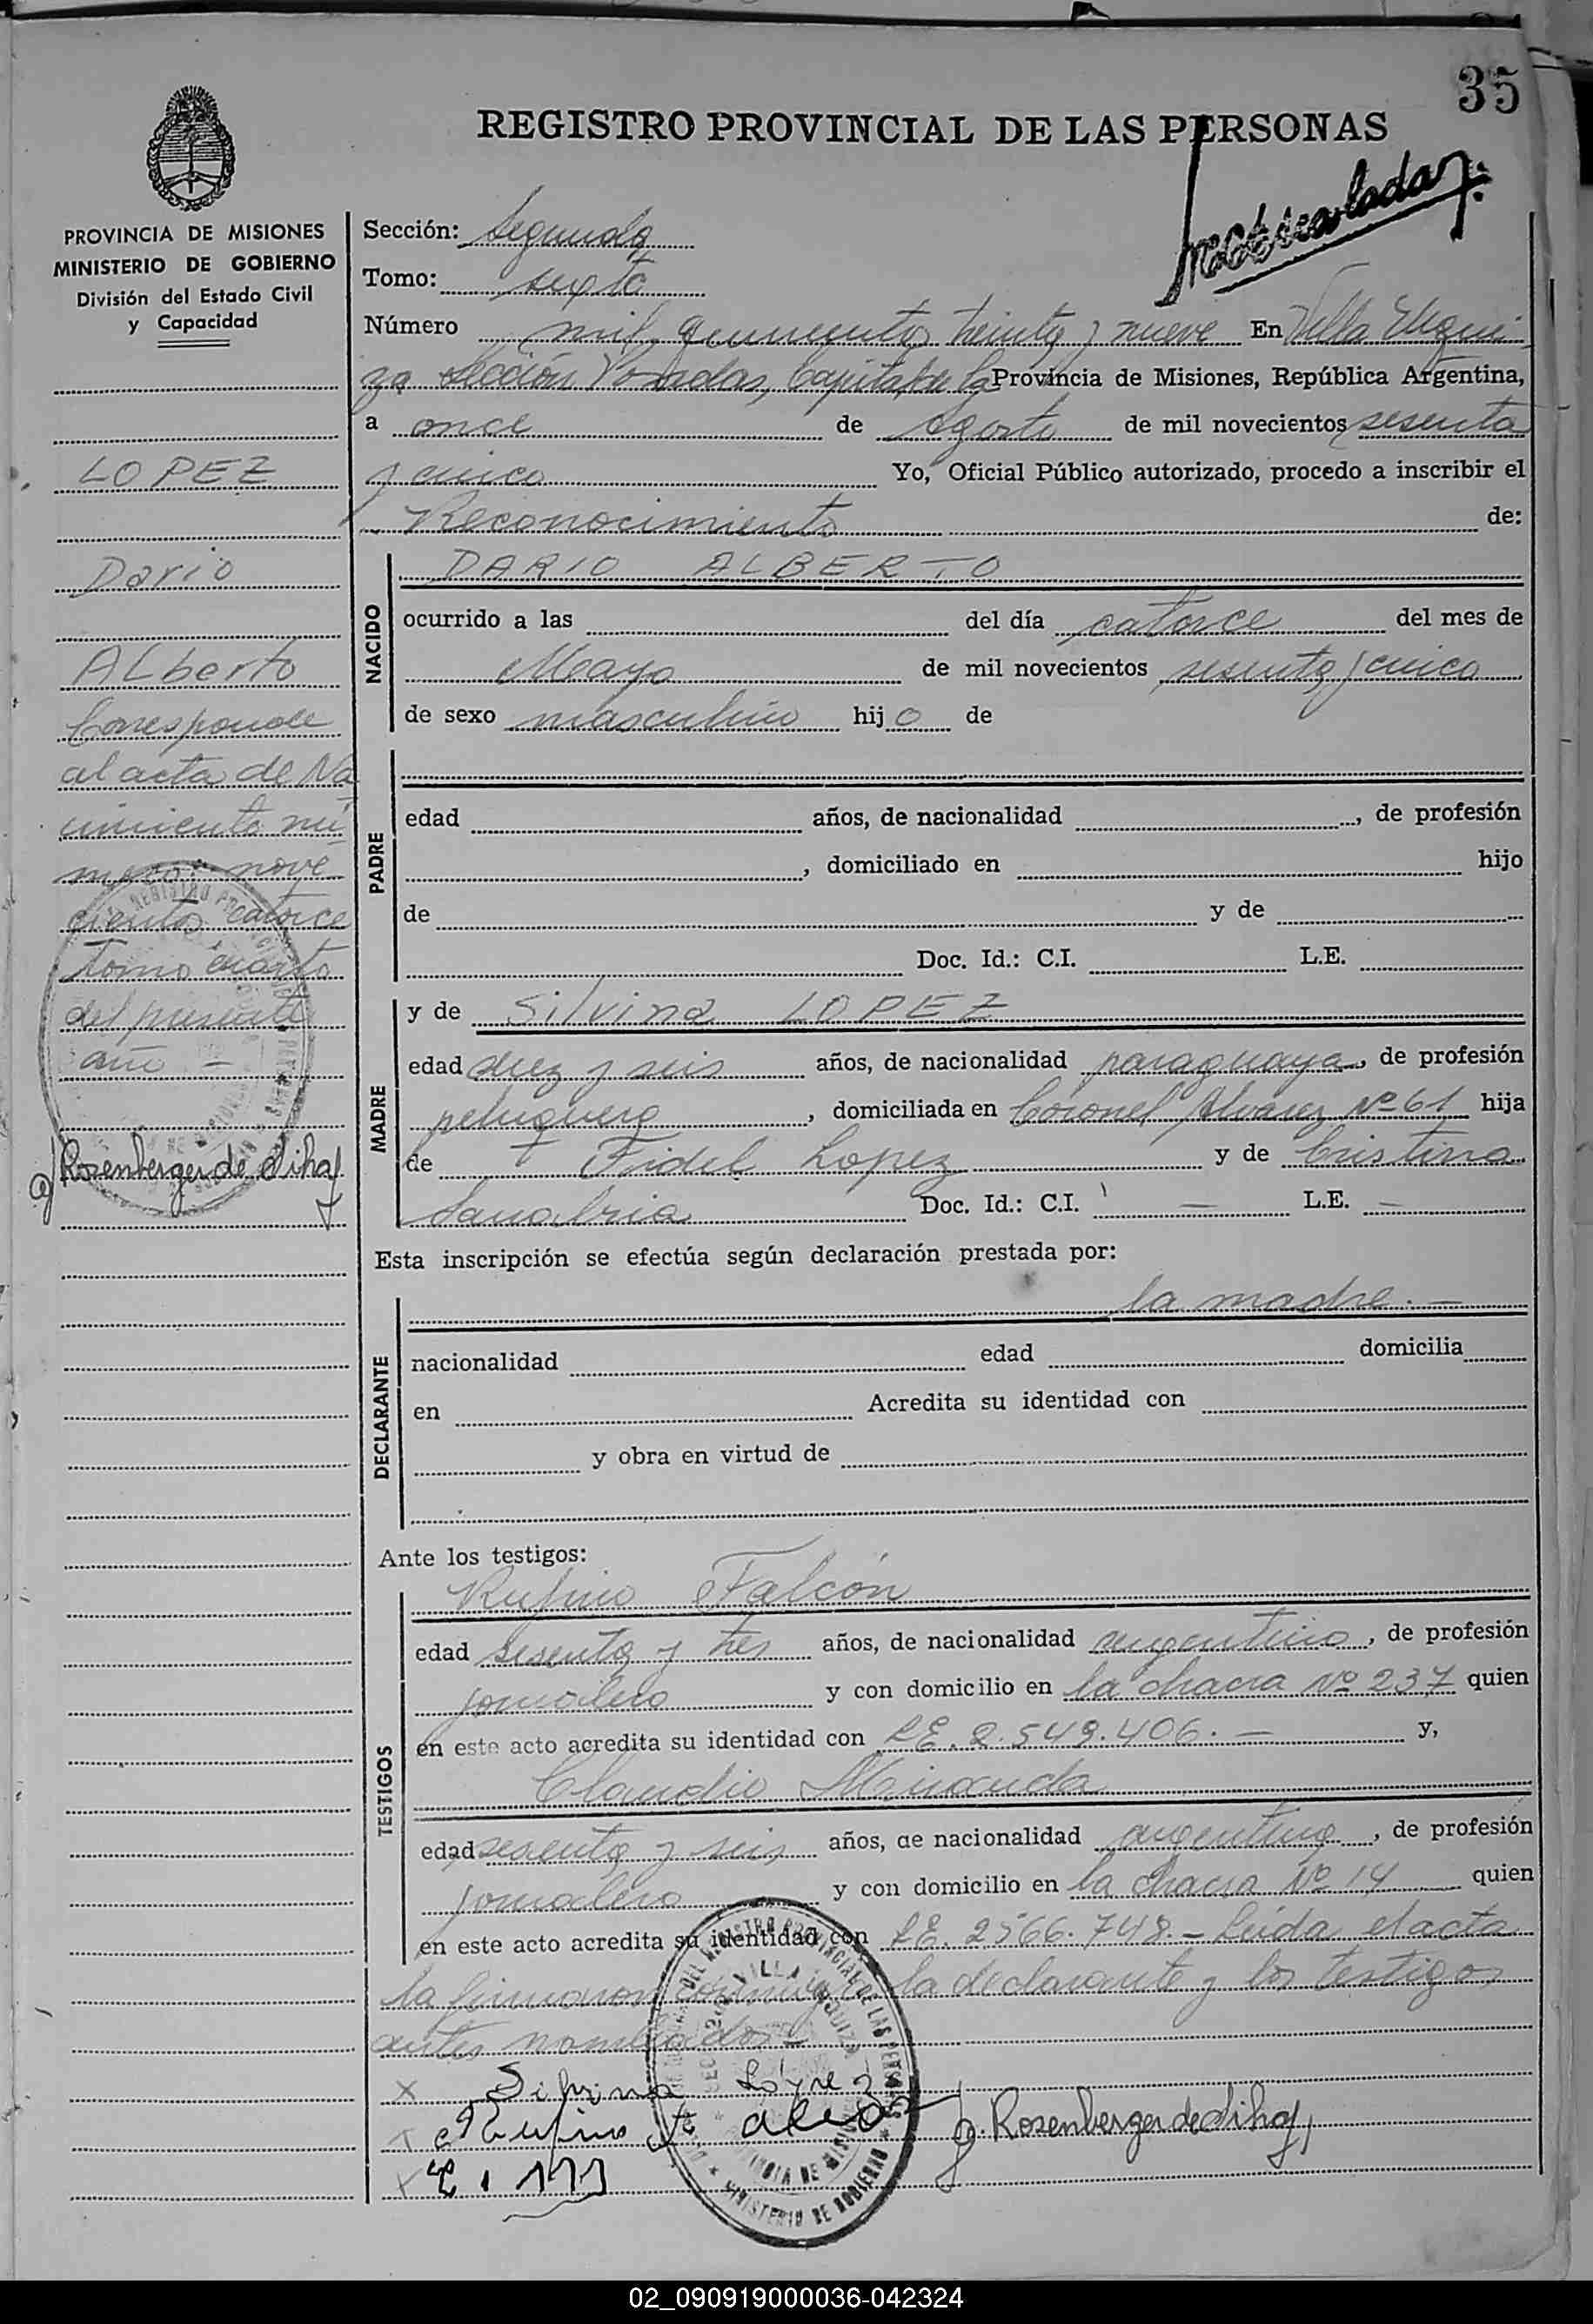 35
REGISTRO PROVINCIAL DE LAS PERSONAS
Matriculada
PROVINCIA DE MISIONES
MINISTERIO DE GOBIERNO
División del Estado Civil
y Capacidad
LOPEZ
Dario
ALberto
Corresponde
al acta de Na
cimiento nú
mero: nove
cientos catorce
Tomo cuarto
del presente
año -
g Rosenberger de Dihaj
Sección: Segunda
Tomo: sexto
Número mil quinientos treinta y nueve En Villa Urqui
za Sección Posadas, Capital de la Provincia de Misiones, República Argentina,
a once de Agosto de mil novecientos sesenta
y cinco Yo, Oficial Público autorizado, procedo a inscribir el
Reconocimiento de:
NACIDO
DARIO ALBERTO
ocurrido a las del día catorce del mes de
Mayo de mil novecientos sesenta y cinco
de sexo masculino hijo de
PADRE
edad años, de nacionalidad , de profesión
, domiciliado en hijo
de y de
Doc. Id.: C.I. L.E.
MADRE
y de Silvina LOPEZ
edad diez y seis años, de nacionalidad paraguaya, de profesión
peluquera, domiciliada en Coronel Alvarez Nº 61 hija
de Fidel Lopez y de Cristina
Sanabria Doc. Id.: C.I. — L.E. —
Esta inscripción se efectúa según declaración prestada por:
DECLARANTE
la madre. —
nacionalidad edad domicilia
en Acredita su identidad con
y obra en virtud de
Ante los testigos:
TESTIGOS
Rufino Falcón
edad sesenta y tres años, de nacionalidad argentino, de profesión
jornalero y con domicilio en la chacra Nº 237 quien
en este acto acredita su identidad con L.E. 2.549.406. — y,
Claudio Miranda
edad sesenta y seis años, de nacionalidad argentino, de profesión
jornalero y con domicilio en la chacra Nº 14 quien
en este acto acredita su identidad con L.E. 2566.748. - Leída el acta
la firmaron conmigo la declarante y los testigos
antes nombrados -
x Silvina Lopez
x Rufino Falcon g. Rosenberger de Dihaj
x
02_090919000036-042324